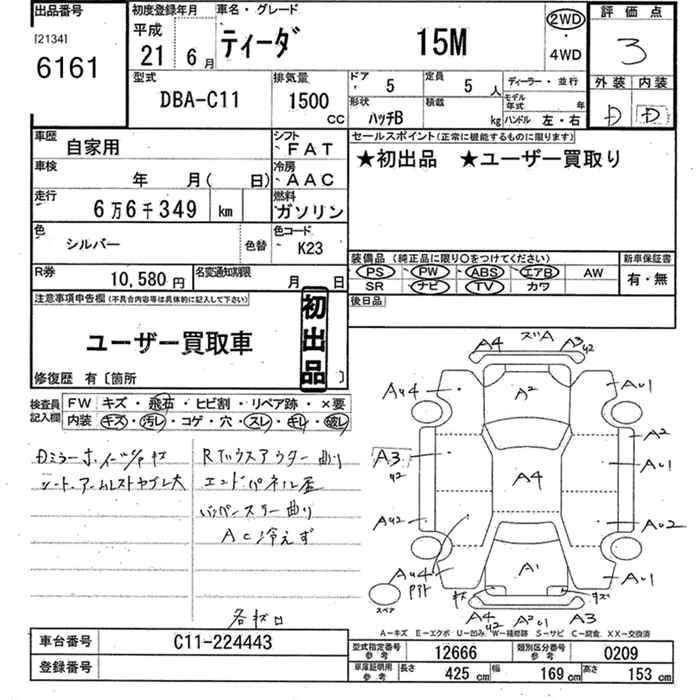 出品番号
[2134]
6161
初度登録年月
平成
21年 6月
車名・グレード
ティーダ 15M
2WD
・
4WD
評価点
3
外装 内装
D D
型式
DBA-C11
排気量
1500
CC
ドア 5
定員 5人
形状 ハッチB
積載 kg
ディーラー・並行
モデル年式 年
ハンドル 左・右
車歴 自家用
シフト FAT
車検 年 月( 日)
冷房 AAC
走行 6万6千349 km
燃料 ガソリン
色 シルバー
色替
色コード K23
R券 10,580円
名変通知期限 月 日
セールスポイント(正常に機能するものに限ります)
★初出品 ★ユーザー買取り
装備品(純正品に限り○をつけてください)
PS PW ABS エアB AW
SR ナビ TV カワ
新車保証書
有・無
後日品
注意事項申告欄(不具合内容等は具体的に記入して下さい)
ユーザー買取車
初出品
修復歴 有〔箇所 〕
検査員記入欄
FW キズ・飛石・ヒビ割・リペア跡・×要
内装 キズ・汚レ・コゲ・穴・スレ・キレ・破レ
シート、アームレストヤブレ大
Rバックスアウター曲り
エンドパネル歪
AC冷えず
A4 ズA A3 U2
AU4 A2 AU1
A2
A3 U2 A4 AU1
AU2 AU2
AU4 A1 AU1
スペア
キズ キズ
A4 U2 A2 U1 A3
A-キズ E-エクボ U-凹み W-補修跡 S-サビ C-腐食 XX-交換済
車台番号 C11-224443
登録番号
型式指定番号 参考 12666
類別区分番号 参考 0209
車庫証明用 参考 長さ 425 cm 幅 169 cm 高さ 153 cm